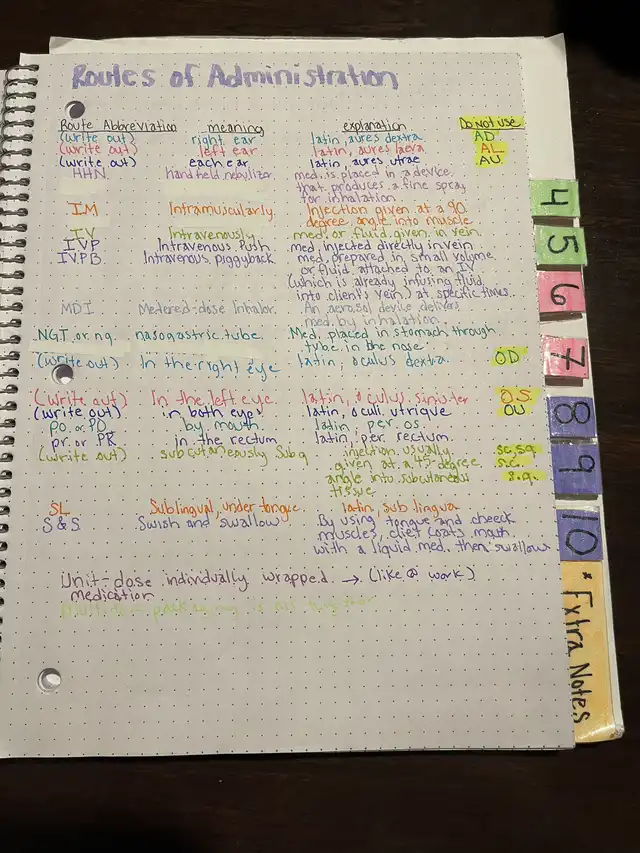 Routes of Administration
Route Abbreviation meaning explanation Do not use
(write out) right ear latin, aures dextra AD
(write out) left ear latin, aures laeva AL
(write out) each ear latin, aures utrae AU
HHN handheld nebulizer med. is placed in a device
that produces a fine spray
for inhalation
IM Intramuscularly Injection given at a 90
degree angle into muscle
IV Intravenously med. or fluid given in vein.
IVP Intravenous Push med, injected directly in vein
IVPB Intravenous piggyback med, prepared in small volume
or fluid attached to an IV
(which is already infusing fluid
into client's vein) at specific times.
MDI Metered-dose Inhalor. An aerosol device delivers
med. by inhalation.
NGT, or ng. nasogastric tube. Med, placed in stomach through
tube in the nose.
(write out) In the right eye latin, oculus dextra. OD
(write out) In the left eye latin, oculus sinister O.S.
(write out) in both eyes latin, oculi utrique OU
po. or PO by mouth latin per os.
pr. or PR in the rectum latin, per rectum.
(write out) subcutaneously Sub q injection usually sc. sq.
given at a 45-degree s.c.
angle into subcutaneous s.q.
tissue
SL Sublingual, under tongue. latin, sub lingua
S & S Swish and swallow By using tongue and cheeck
muscles, cliet coats moth.
with a liquid med. then swallow
Unit-dose individually wrapped. → (like @ work)
medication.
4
5
6
7
8
9
10
* Extra Notes